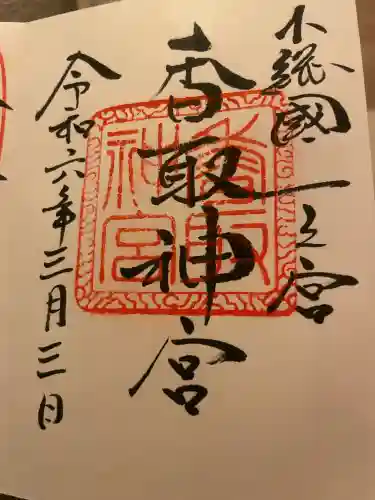 下総國一之宮
香取神宮
香取神宮
令和六年三月三日